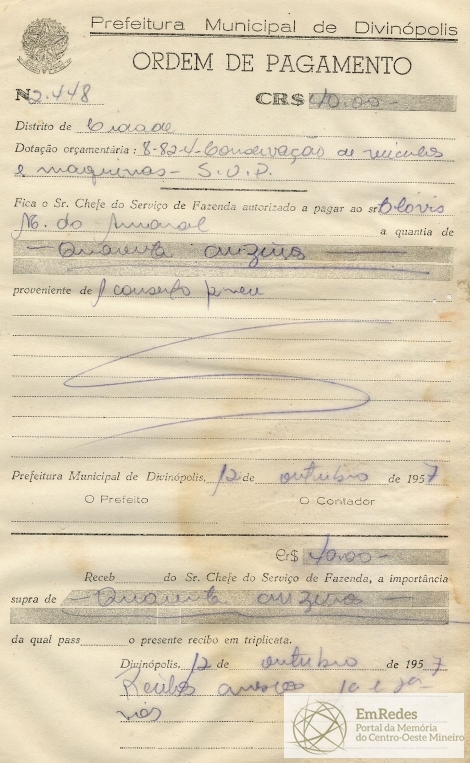 Prefeitura Municipal de Divinópolis
ORDEM DE PAGAMENTO
Nº 2.448 CR$ 40,00-
Distrito de Cidade
Dotação orçamentária: 8-82-4-Conservação de veiculos
e maquinas - S.V.P.
Fica o Sr. Chefe do Serviço de Fazenda autorizado a pagar ao sr Clovis
M. do Amaral a quantia de
— Quarenta cruzeiros —
proveniente de 1 conserto pneu
Prefeitura Municipal de Divinópolis, 12 de outubro de 1957
O Prefeito O Contador
Cr$ 40,00-
Receb do Sr. Chefe do Serviço de Fazenda, a importância
supra de — Quarenta cruzeiros —
da qual pass o presente recibo em triplicata.
Divinópolis, 12 de outubro de 1957
Recibos anexos 1a e 2a
vias
EmRedes
Portal da Memória
do Centro-Oeste Mineiro